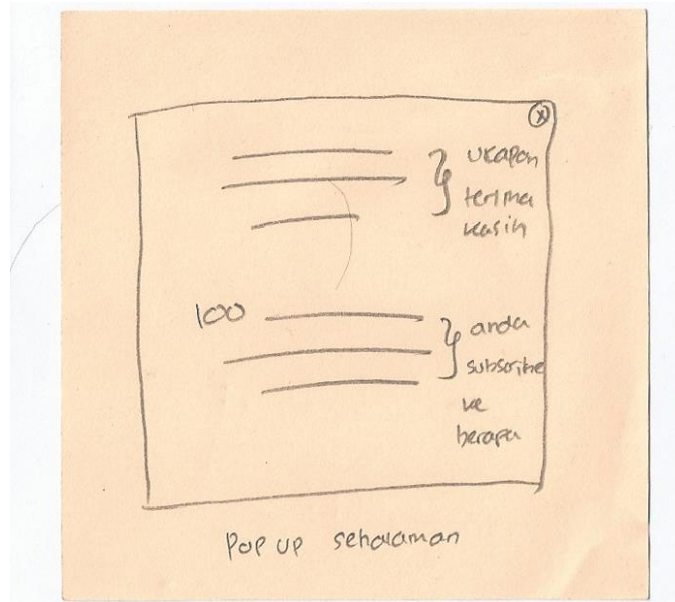 x
ucapan
terima
kasih
100
anda
subscribe
ke
berapa
Pop up sehalaman